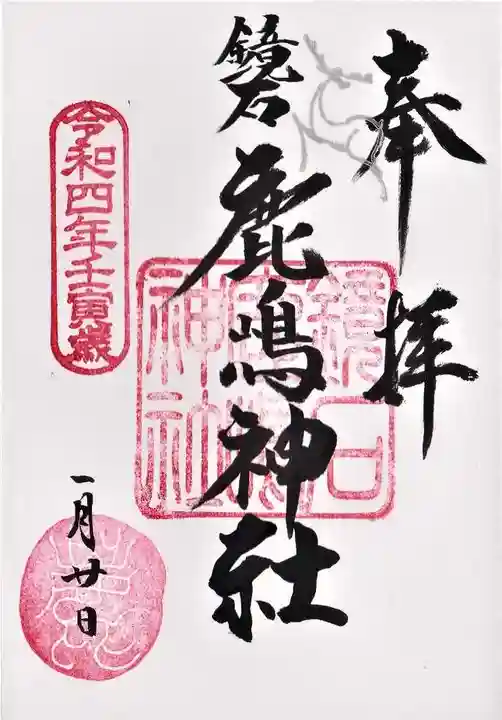 奉拝
鏡石
鹿嶋神社
鏡石鹿嶋神社
令和四年壬寅歳
一月廿日